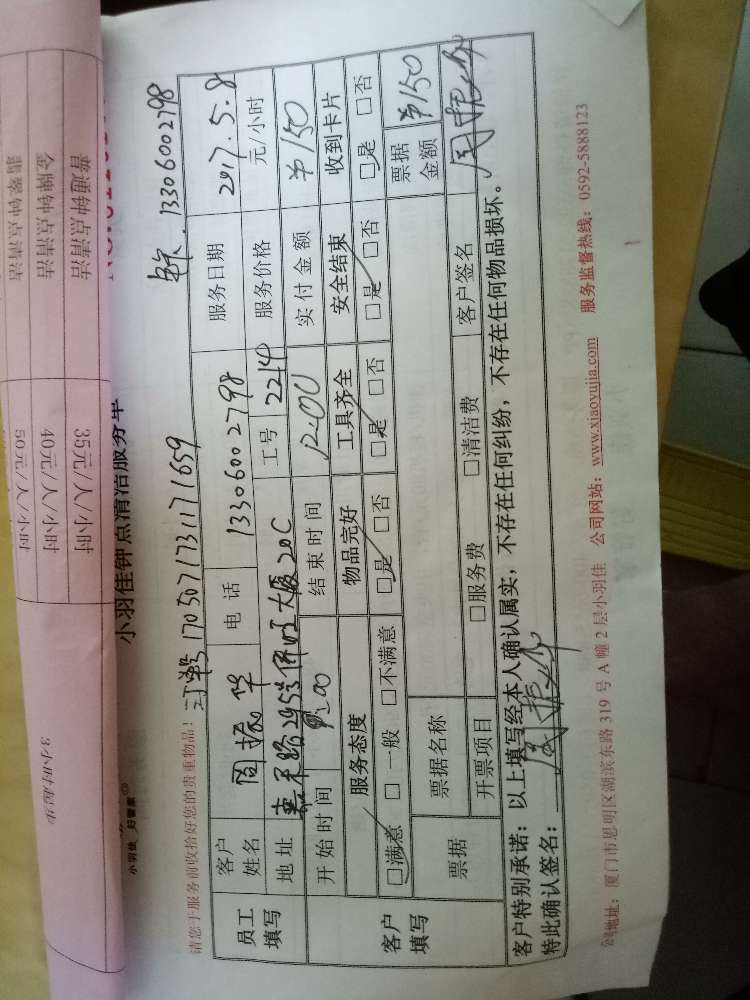 普通钟点清洁 35元/人/小时
金牌钟点清洁 40元/人/小时
翡翠钟点清洁 50元/人/小时
3小时起步
小羽佳 好管家
小羽佳钟点清洁服务单
请您于服务前收拾好您的贵重物品!
订单号 1705071731171659
13306002798
员工填写 客户姓名 周振华 电话 13306002798 服务日期 2017.5.8
地址 嘉禾路295号侨旺大厦20C 工号 2214 服务价格 元/小时
客户填写 开始时间 :00 结束时间 12:00 实付金额 ¥150
服务态度 物品完好 工具齐全 安全结束 收到卡片
□满意 □一般 □不满意 □是 □否 □是 □否 □是 □否 □是 □否
票据 票据名称 票据金额 ¥150
开票项目 □服务费 □清洁费 客户签名 周振华
客户特别承诺:以上填写经本人确认属实,不存在任何纠纷,不存在任何物品损坏。
特此确认签名: 周振华
公司地址:厦门市思明区湖滨东路319号A幢2层小羽佳 公司网站:www.xiaoyujia.com 服务监督热线:0592-5888123